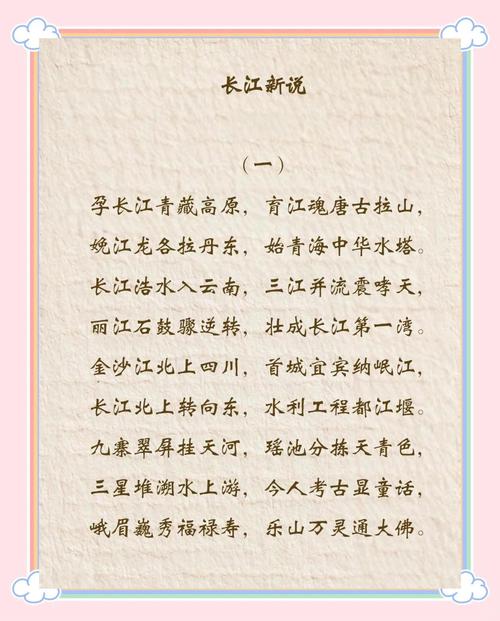 长江新说
（一）
孕长江青藏高原，育江魂唐古拉山，
娩江龙各拉丹东，始青海中华水塔。
长江浩水入云南，三江并流震哮天，
丽江石鼓骤逆转，壮成长江第一湾。
金沙江北上四川，首城宜宾纳岷江，
长江北上转向东，水利工程都江堰。
九寨翠屏挂天河，瑶池分拣天青色，
三星堆溯水上游，今人考古显童话，
峨眉巍秀福禄寿，乐山万灵通大佛。